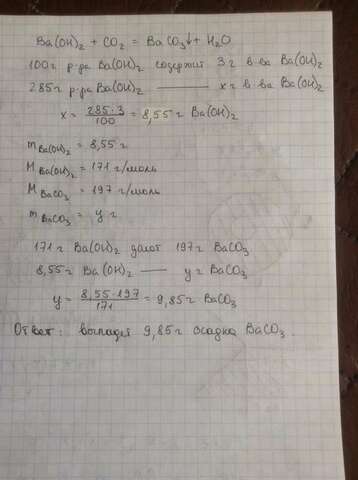 Ba(OH)₂ + CO₂ = BaCO₃↓ + H₂O
100г р-ра Ba(OH)₂ содержит 3г в-ва Ba(OH)₂
285г р-ра Ba(OH)₂ —— x г в-ва Ba(OH)₂
x = 285·3/100 = 8,55 г Ba(OH)₂
m Ba(OH)₂ = 8,55 г
M Ba(OH)₂ = 171 г/моль
M BaCO₃ = 197 г/моль
m BaCO₃ = y г
171 г Ba(OH)₂ дают 197г BaCO₃
8,55г Ba(OH)₂ —— y г BaCO₃
y = 8,55·197/171 = 9,85г BaCO₃
Ответ: выпадет 9,85г осадка BaCO₃.